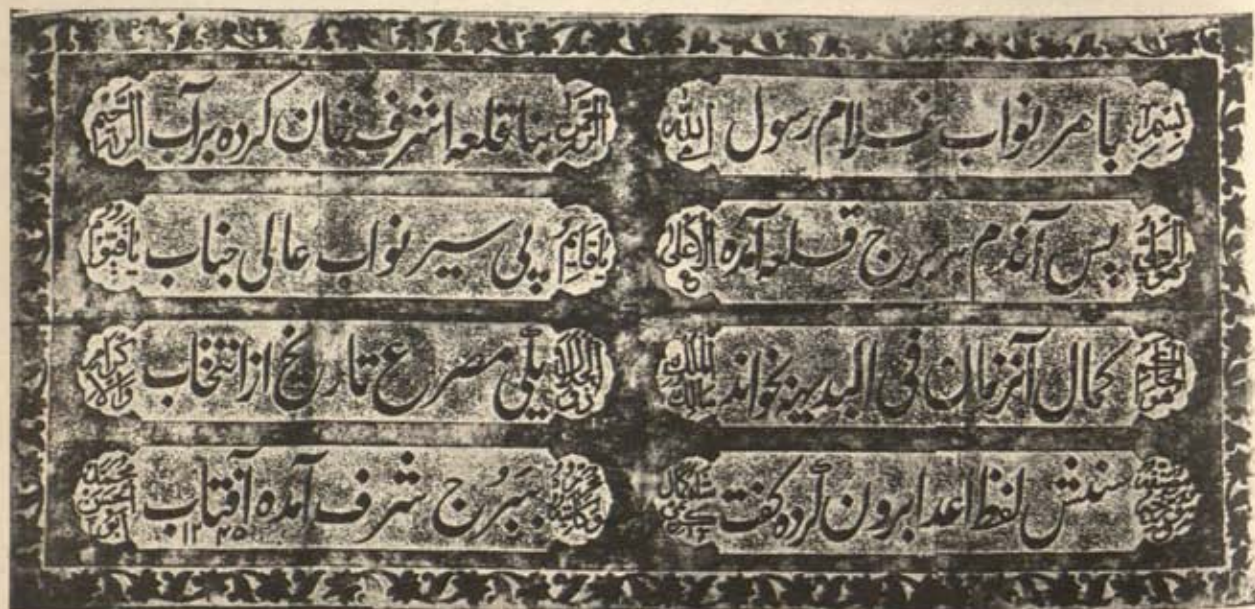 بسم بامر نواب غلام رسول الله الرحمن بنا قلعه اشرف خان کرده بر آب الرحیم
العلی پس آندم ببرج قلعه آمده الاعلی یا قایم پی سیر نواب عالی جناب یا قیوم
کمال آنزمان فی البدیهه بخواند مالک الملک ذوالجلال یکی مصرع تاریخ از انتخاب والاکرام
سنش لفظ اعدا برون کرده گفت ببرج شرف آمده آفتاب ۱۲۴۵